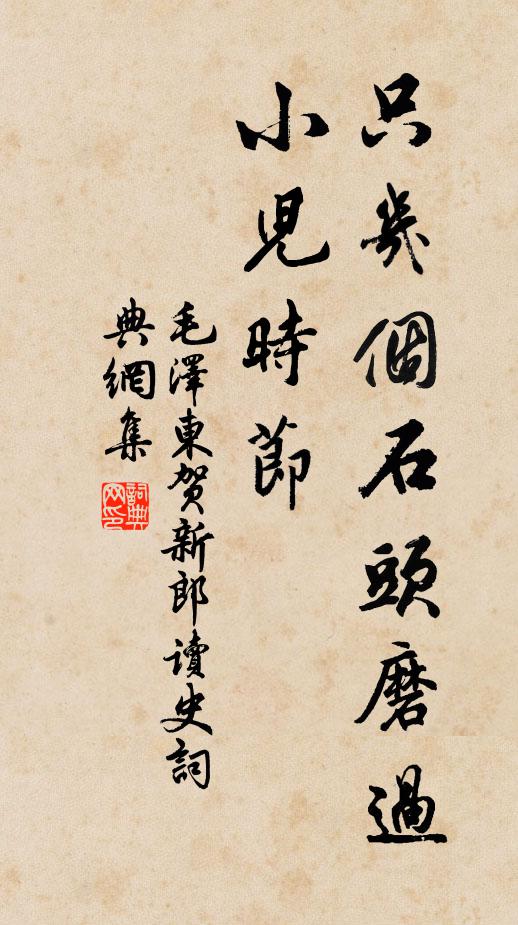 只幾個石頭磨過
小児時節
毛澤東賀新郎讀史詞
典網集
詞典
网印